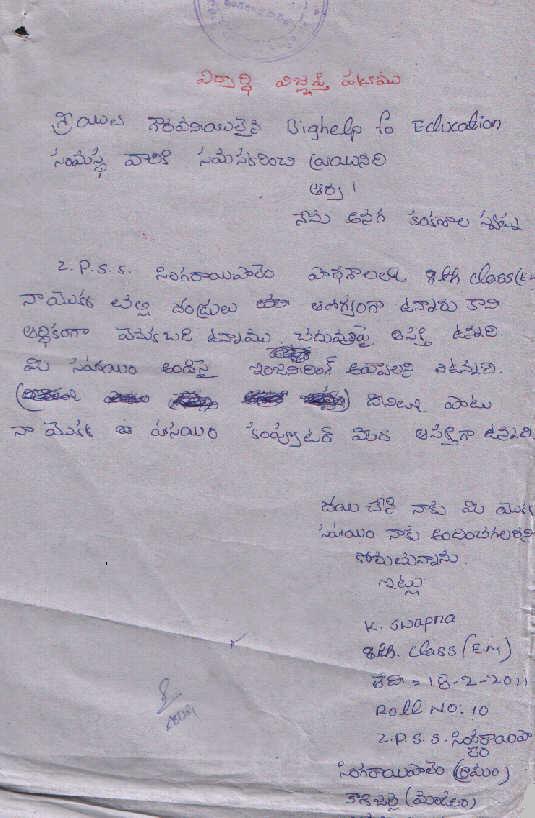 విద్యార్థి విజ్ఞప్తి పత్రము
శ్రీయుత గౌరవనీయులైన Bighelp fo Education
సంస్థ వారికి నమస్కరించి వ్రాయునది
ఆర్య!
నేను అనగా కంకణాల స్వప్న
Z.P.S.S. సింగరాయిపాలెం పాఠశాలలో 8th class (E
నాయొక్క తల్లి దండ్రులు ఆరోగ్యంగా ఉన్నారు కాని
ఆర్థికంగా వెనుకబడి ఉన్నాము. చదువుపై ఆసక్తి ఉన్నది
మీ సహాయం అందిస్తే ఇంజినీరింగ్ అవ్వాలని
దీనితో పాటు
నా యొక్క కంప్యూటర్ మీద ఆసక్తిగా ఉన్నది.
దయ చేసి నాకు మీ యొక్క
సహాయం నాకు అందించగలరని
కోరుచున్నాను.
ఇట్లు
K. Swapna
8th. class (E.M)
తేది = 18-2-2011
Roll NO. 10
Z.P.S.S. సింగరాయిపా
లెం
సింగరాయిపాలెం (గ్రామం)
(మండలం)